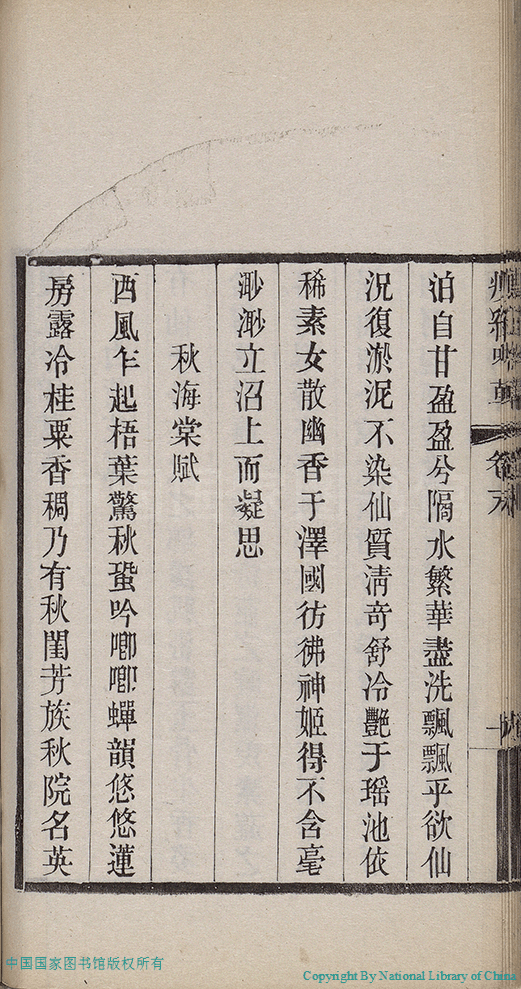 泊自甘盈盈兮隔水繁華盡洗飄飄乎欲仙
況復淤泥不染仙質清奇舒冷艷于瑶池依
稀素女散幽香于澤國彷彿神姬得不含毫
渺渺立沼上而凝思
秋海棠賦
西風乍起梧葉驚秋蛩吟唧唧蟬韻悠悠蓮
房露冷桂粟香稠乃有秋閨芳族秋院名英
中国国家图书馆版权所有
Copyright By National Library of China